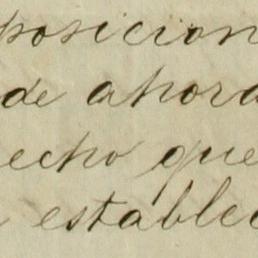 posicion
de ahora
echo que
establec